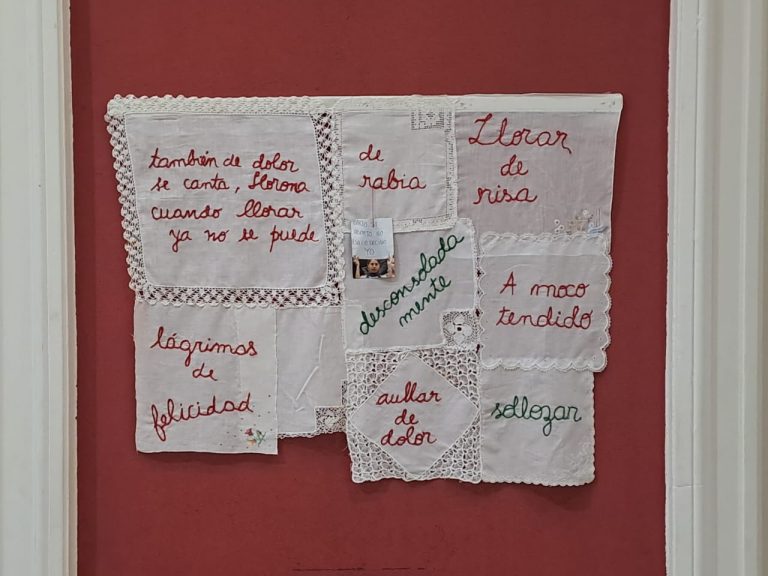 también de dolor
se canta, llorona
cuando llorar
ya no se puede
de
rabia
Llorar
de
risa
desconsolada
mente
A moco
tendido
lágrimas
de
felicidad
aullar
de
dolor
sollozar